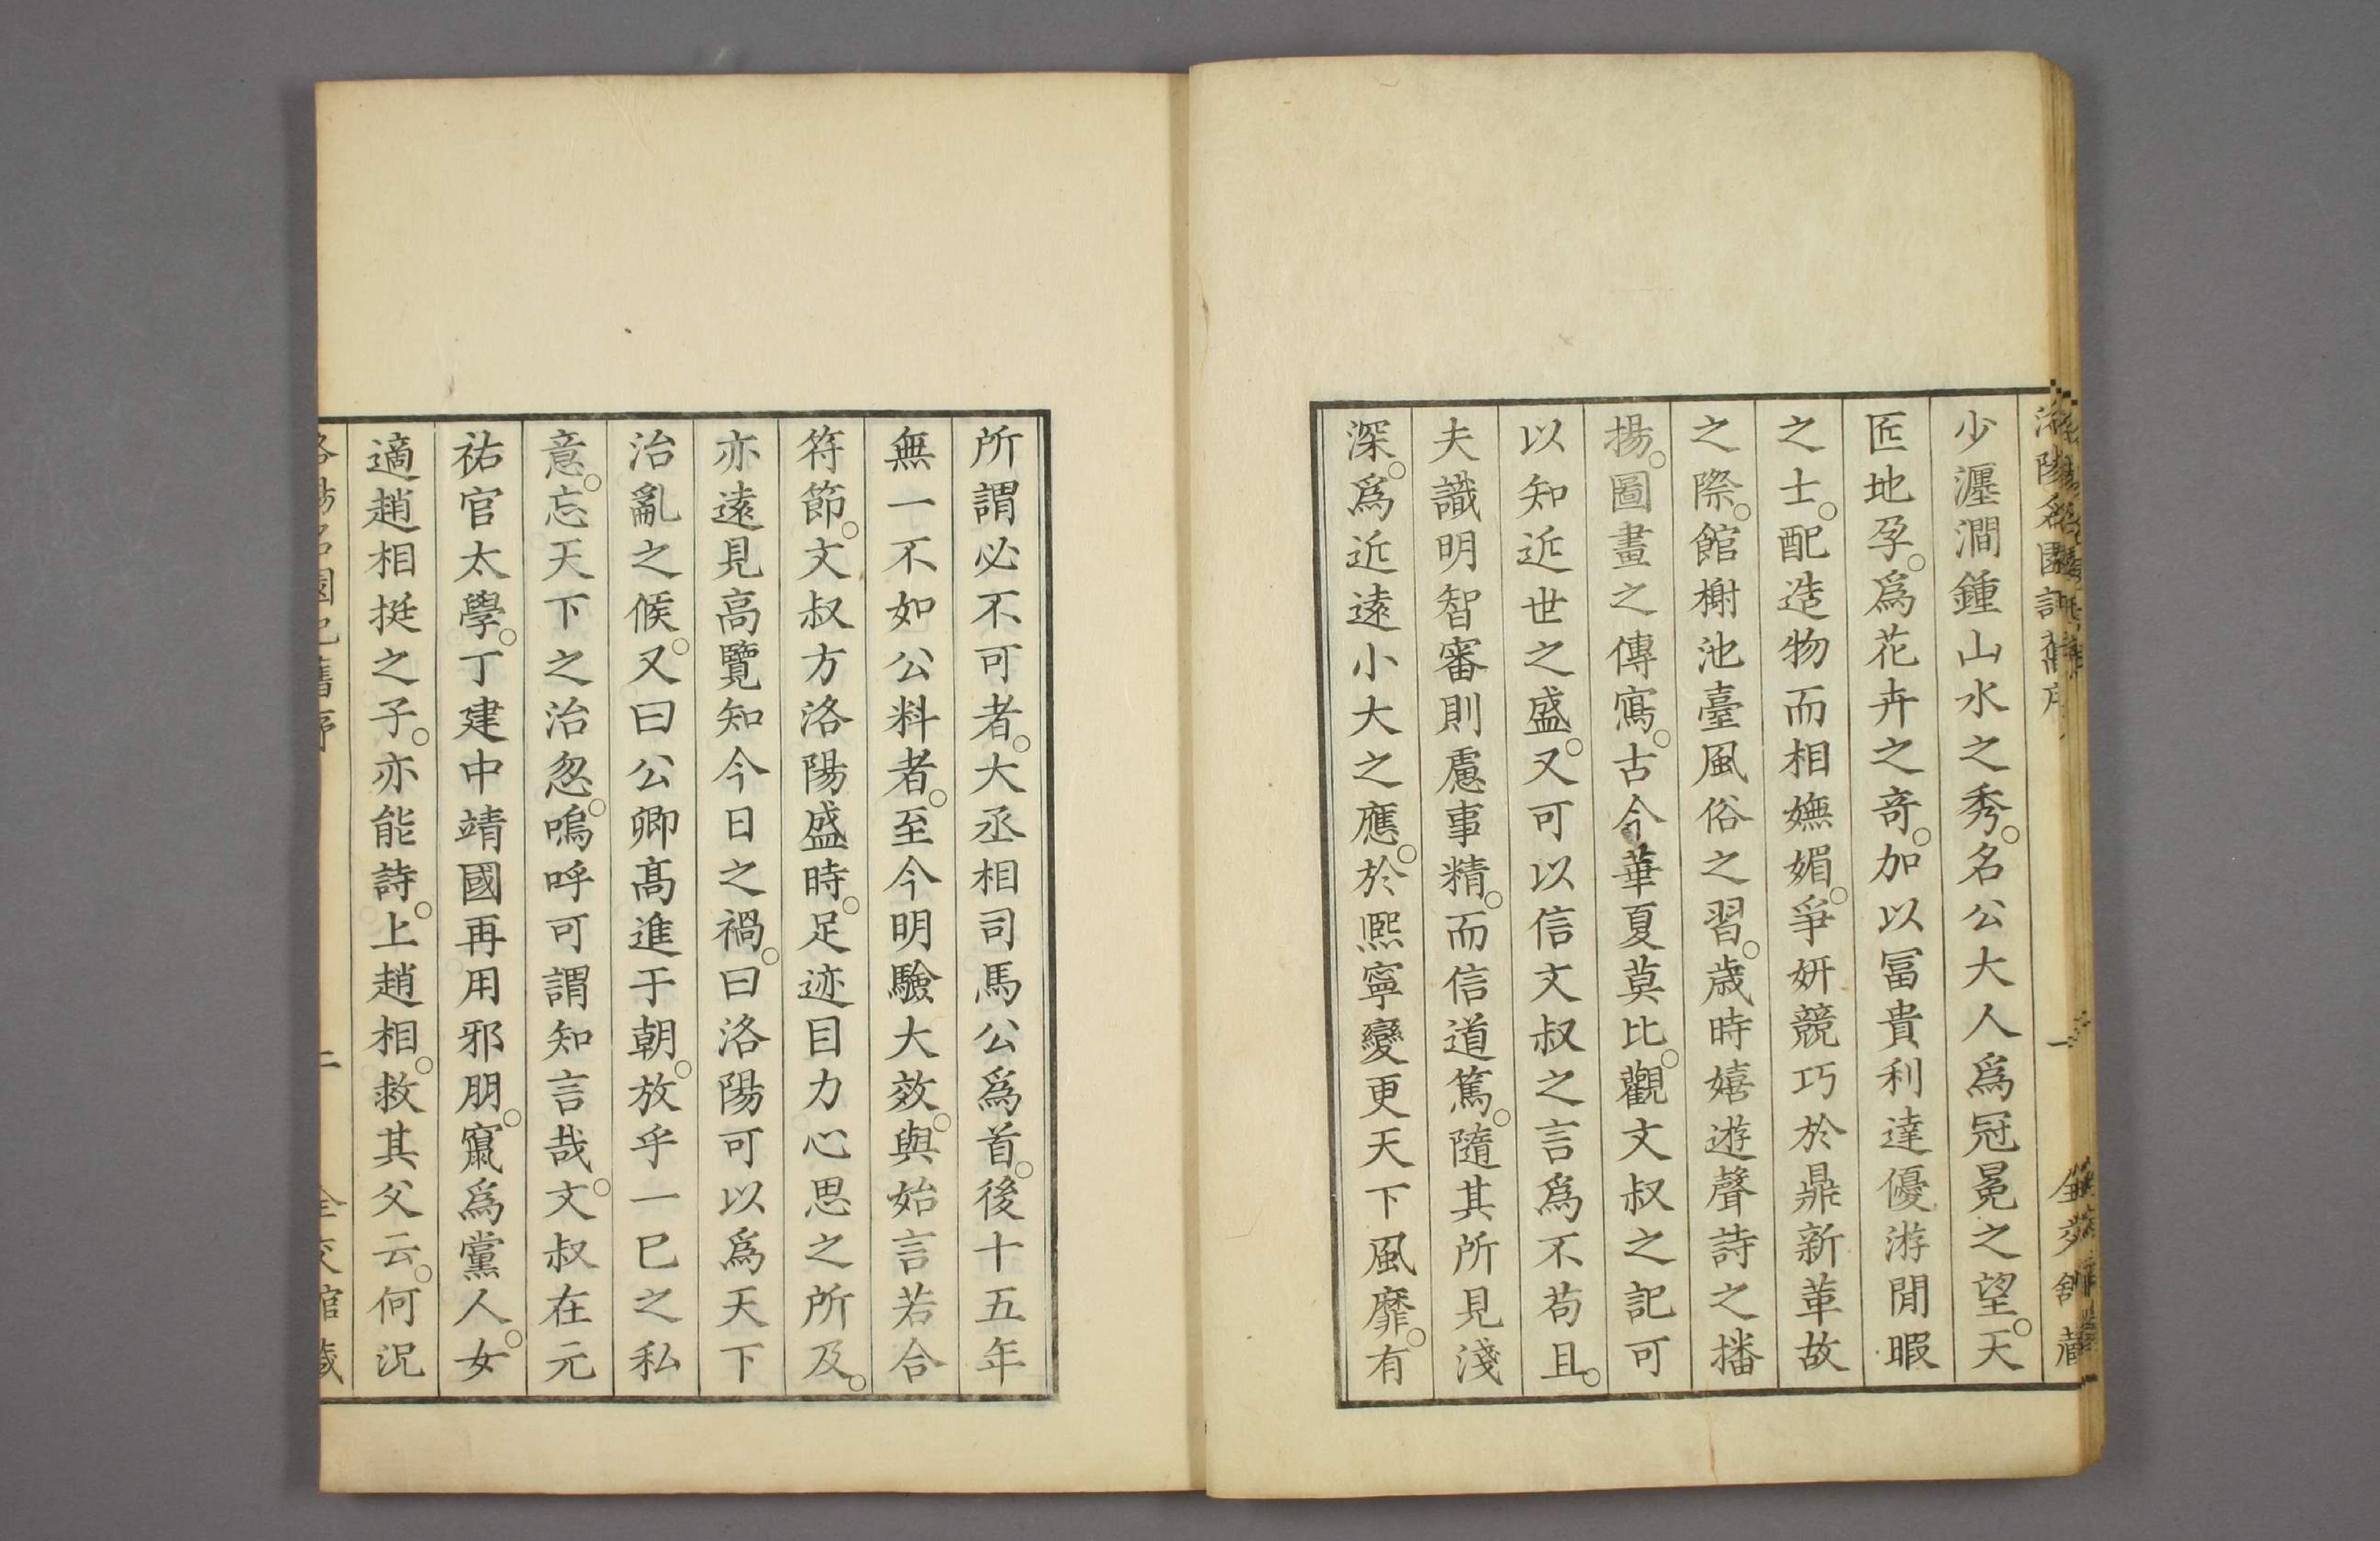 洛陽名園記舊序
一
全交館藏
少瀍澗鍾山水之秀。名公大人爲冠冕之望。天
匠地孕。爲花卉之奇。加以冨貴利達優游閒暇
之士。配造物而相嫵媚。爭妍競巧於鼎新革故
之際。館榭池臺風俗之習。歲時嬉遊聲詩之播
揚。圖畫之傳寫。古今華夏莫比。觀文叔之記可
以知近世之盛。又可以信文叔之言爲不苟且。
夫識明智審則慮事精。而信道篤。隨其所見淺
深。爲近遠小大之應。於熙寧變更天下風靡。有
所謂必不可者。大丞相司馬公爲首。後十五年
無一不如公料者。至今明驗大效。與始言若合
符節。文叔方洛陽盛時。足迹目力心思之所及。
亦遠見高覽知今日之禍。曰洛陽可以爲天下
治亂之候。又曰公卿髙進于朝。放乎一己之私
意。忘天下之治忽。嗚呼可謂知言哉。文叔在元
祐官太學。丁建中靖國再用邪朋。竄爲黨人。女
適趙相挺之子。亦能詩。上趙相。救其父云。何況
洛陽名園記舊序
二
全交館藏